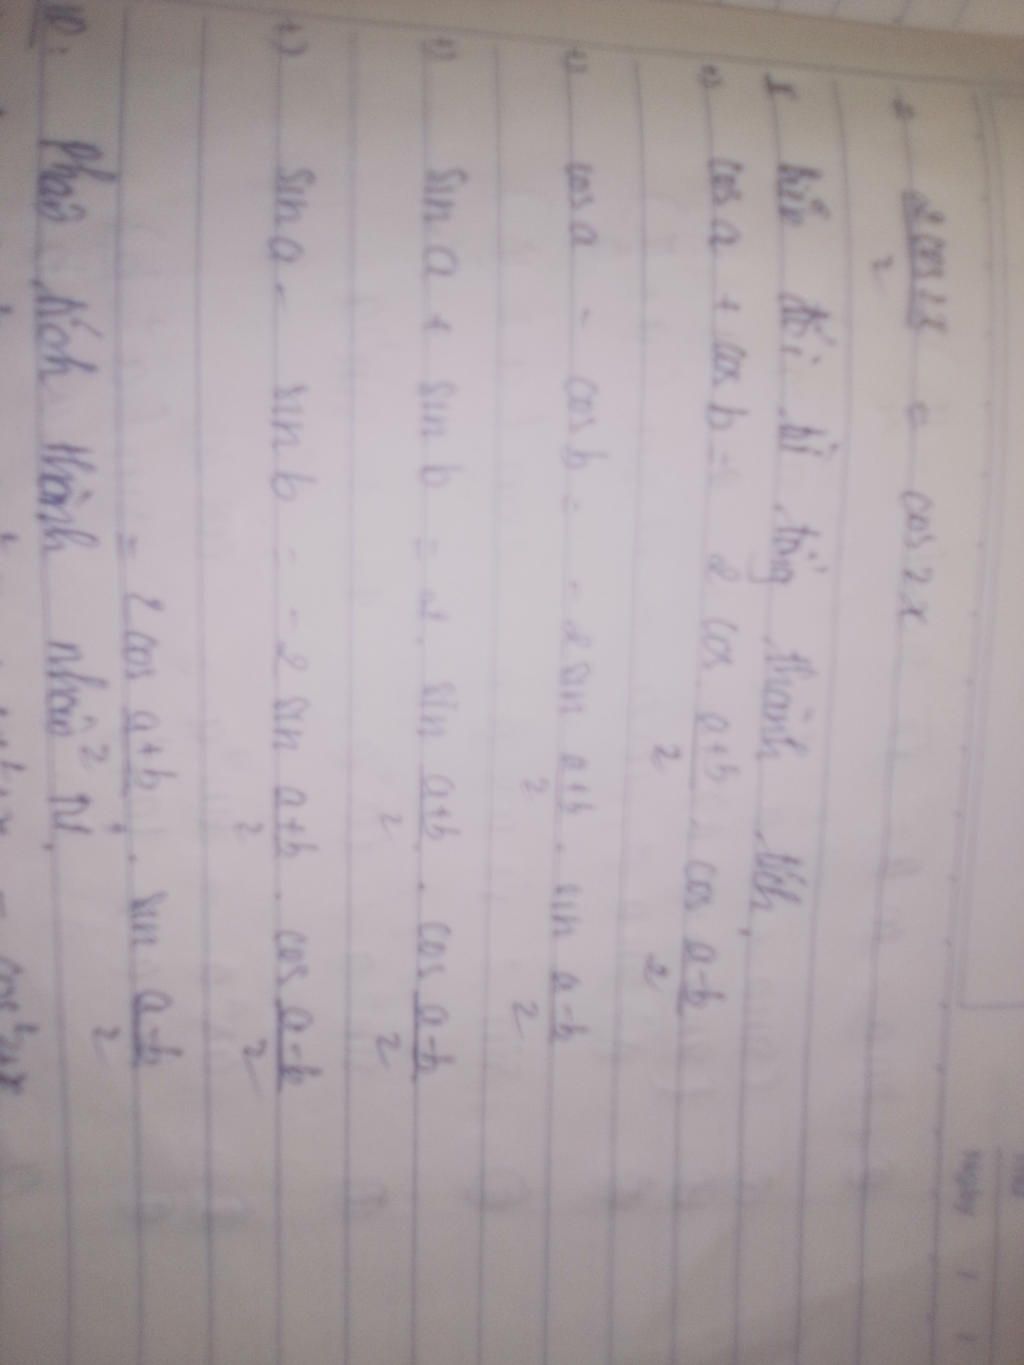 = 2cos2x / 2 = cos2x
I Biến đổi từ tổng thành tích.
+) cos a + cos b = 2 cos a+b/2 . cos a-b/2
+) cos a - cos b = - 2 sin a+b/2 . sin a-b/2
+) sin a + sin b = 2. sin a+b/2 . cos a-b/2
+) sin a - sin b = - 2 sin a+b/2 . cos a-b/2
= 2 cos a+b/2 . sin a-b/2
VD: Phân tích thành nhân tử.